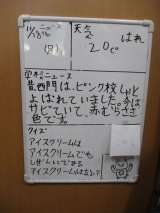 ニュース
天気 はれ
(日)
20℃
学校ニュース
昔西門は、ピンク校しゃと
よばれていました。今は
サビていて、赤むらさき
色です。
クイズ
アイスクリームは
アイスクリームでも
アイスクリームは